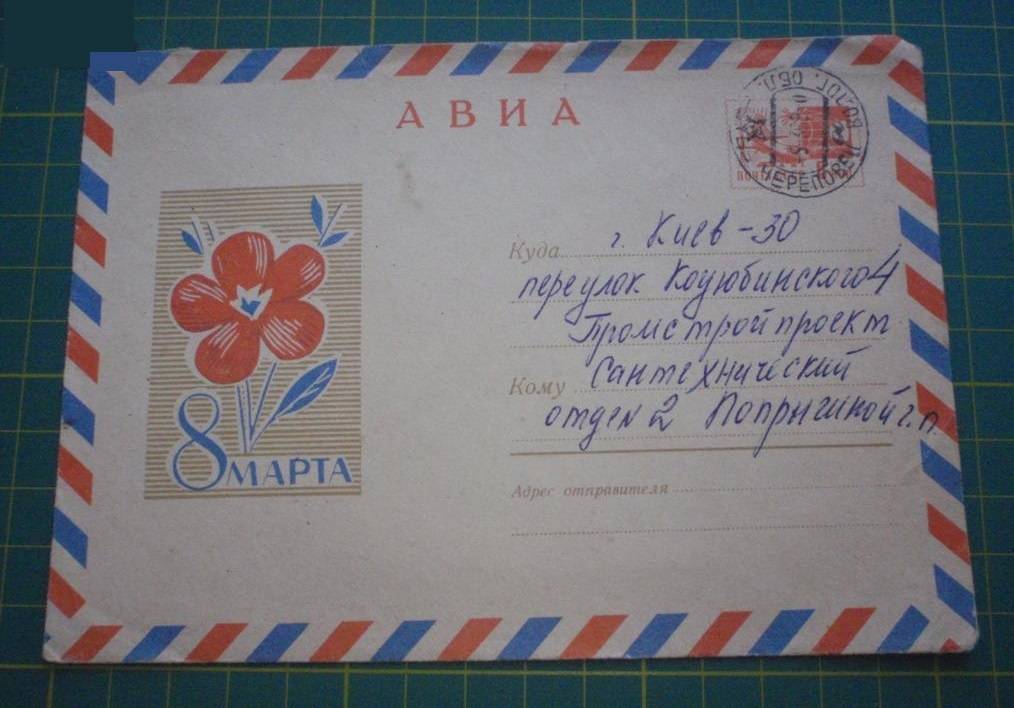 АВИА
ВОЛОГ. ОБЛ.
ЧЕРЕПОВЕЦ
Куда г. Киев-30
переулок Коцюбинского 4
Промстройпроект
Кому Сантехнический
отдел 2 Попрыгиной г. п.
8 МАРТА
Адрес отправителя